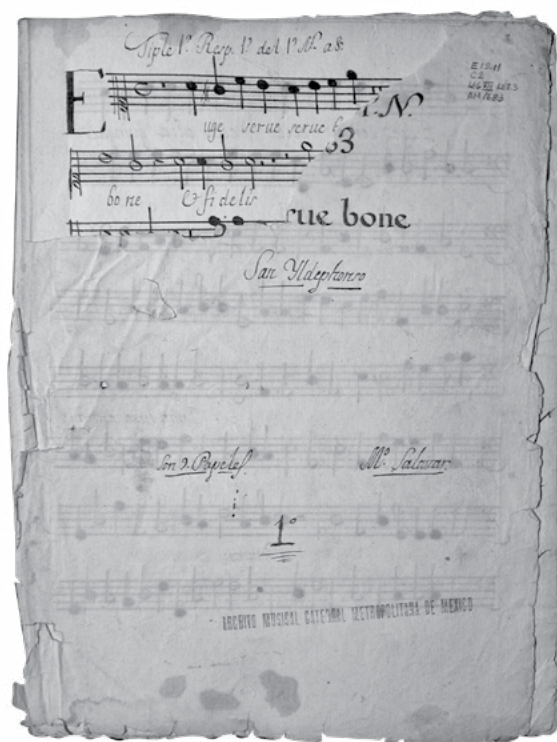 Tiple 1º. Resp. 1º. del 1º Nº. a 8.
E
uge serue serue b
i. N.
3
bone & fidelis
rue bone
San Yldephonso
Son 9. Papeles.
Mº. Salazar
1º
ARCHIVO MUSICAL CATEDRAL METROPOLITANA DE MEXICO